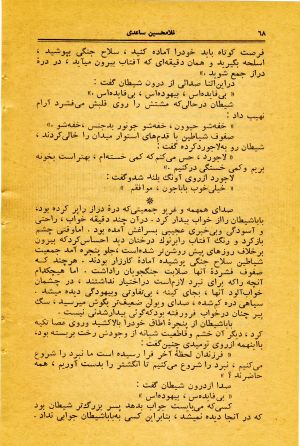 ۶۸
غلامحسین ساعدی
فرصت کوتاه باید خود را آماده کنید ، سلاح جنگی بپوشید ،
اسلحه بگیرید و همان دقیقه‌ای که آفتاب بیرون میآید ، در درهٔ
دراز جمع شوید .»
دراین‌اثنا صدائی از درون شیطان گفت :
« بی‌فایده‌اس ، بیهوده‌اس ، بی‌فایده‌اس»
شیطان درحالی‌که مشتش را روی قلبش می‌فشرد آرام
نهیب داد :
« خفه‌شو حیوون ، خفه‌شو جونور بدجنس ،خفه‌شو»
صفوف شیاطین با قدم‌های استوار میدان را خالی‌کردند ،
شیطان رو به‌لاجوردکرده گفت :
« لاجورد ، حس می‌کنم‌که کمی خسته‌ام ، بهتراست بخونه
بریم وکمی خستگی درکنیم .»
لاجورد ازروی آونگ بلند شدوگفت :
« خیلی‌خوب باباجون ، موافقم .»
*
صدای همهمه و غریو جمعیتی‌که درهٔ دراز راپر کرده بود،
باباشیطان رااز خواب بیدار کرد . درآن چند دقیقه خواب ، راحتی
و آسودگی وبی‌خبری عجیبی بسراغش آمده بود . اماوقتی چشم
بازکرد و رنگ آفتاب رابرنوک درختان دید احساس‌کردکه بیرون
برخلاف روزهای پیش روشن‌تر شده‌است،جلو پنجره آمد جمعیت
شیاطین سلاح جنگی پوشیده آمادهٔ کارزار بودند . هرچند که
صفوف فشردهٔ آنها صلابت جنگجویان راداشت . اما هیچکدام
آنچه راکه برای نبرد لازم‌است دراختیار نداشتند ، در چشمان
خواب‌آلود آنها ، بجای کینه ، بی‌تفاوتی وبیهودگی دیده میشد .
سیاهی دره کم‌کم شده ، صدای وبولن ضعیف‌تر بگوش میرسید ، سگ
پیر چنان درخواب فرورفته بودکه‌گوئی بیدارشدنی نیست .
باباشیطان از پنجرهٔ اطاق خودرا بالاکشید وروی عصا تکیه
کرد ، دیگر آن خشم وقاطعیت شبانه از وجودش رخت بربسته بود،
بااینهمه ازروی نومیدی چنین‌گفت :
« فرزندان لحظهٔ آخر فرا رسیده است ما نبرد را شروع
می‌کنیم ، نبرد را شروع می‌کنیم تا انگشتر را بدست آوریم ، همه
حاضرند ؟»
صدا ازدرون شیطان گفت :
« بی‌فایده‌اس ، بیهوده‌اس »
کسی‌که می‌بایست جواب بدهد پسر بزرگ‌تر شیطان بود
که در آنجا دیده نمیشد ، بنابراین کسی به‌باباشیطان جوابی نداد .